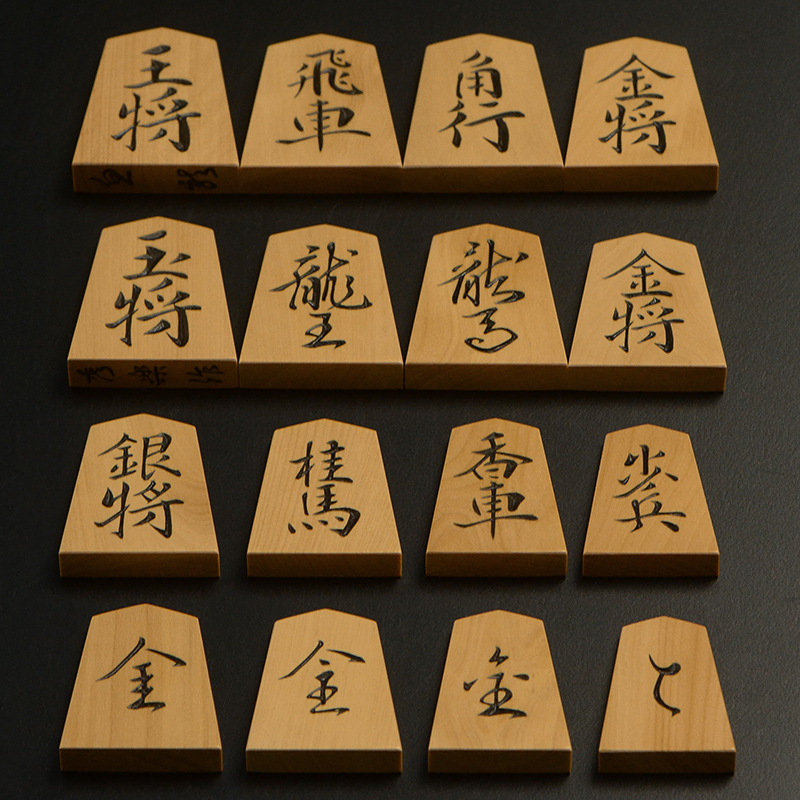 王将 飛車 角行 金将
玉将 龍王 龍馬 金将
銀将 桂馬 香車 歩兵
全 金 金 と